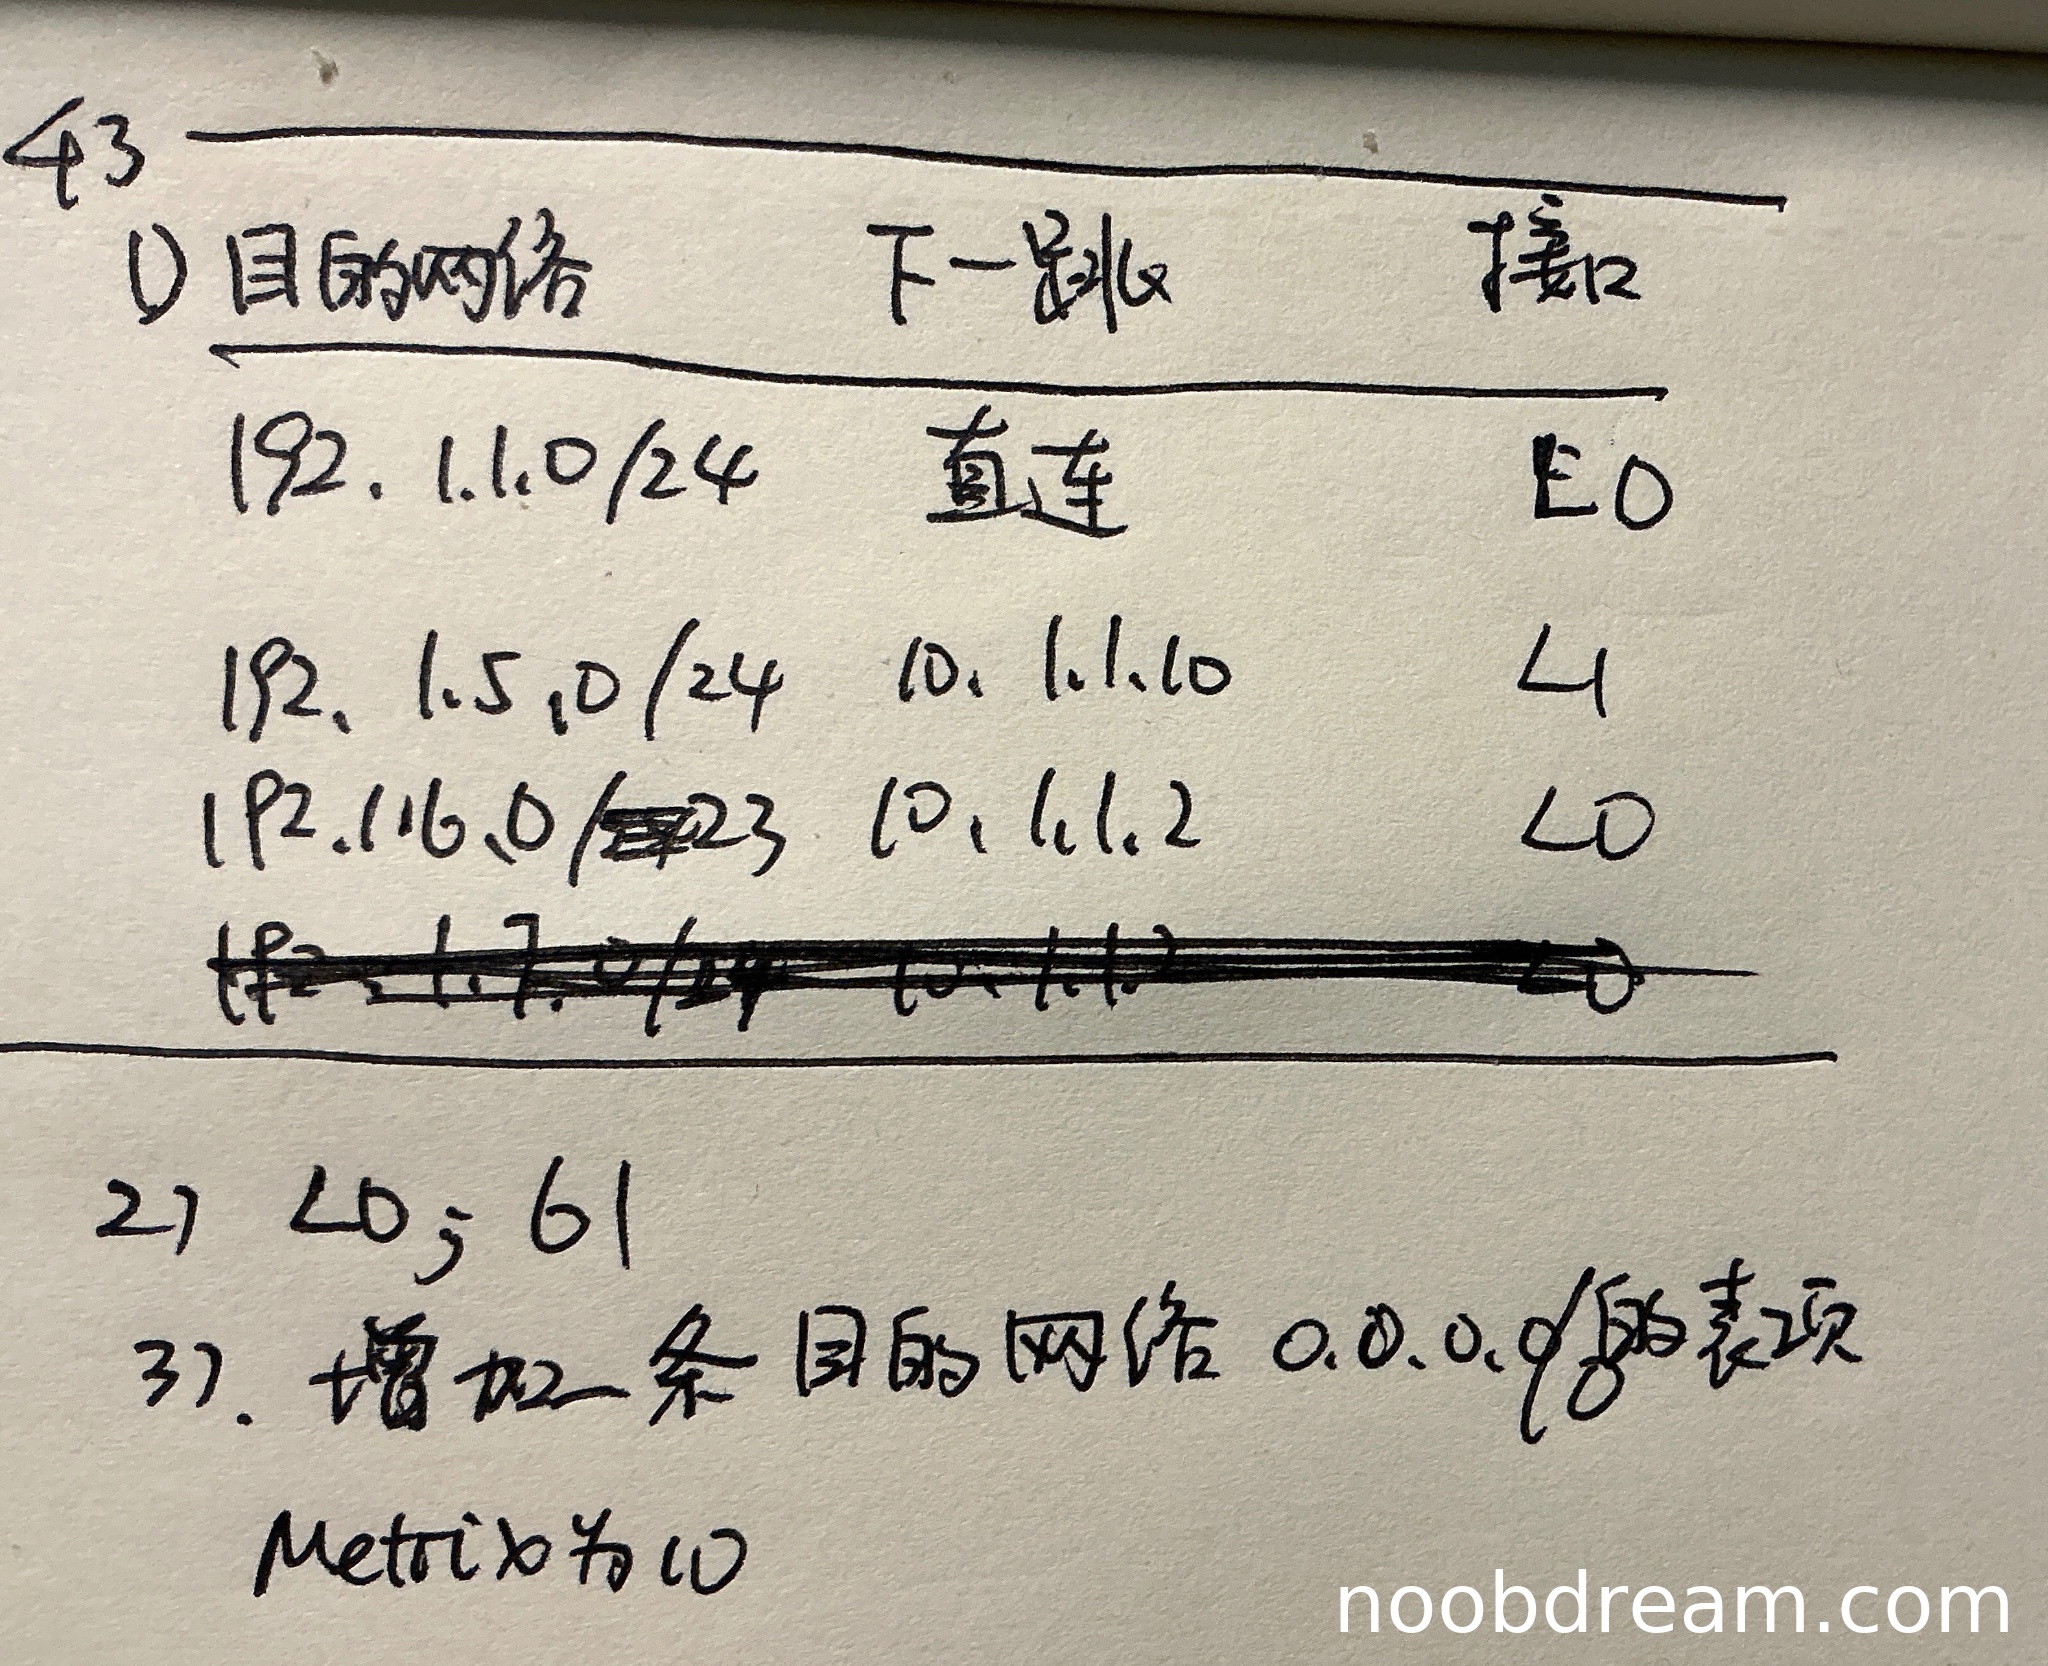 43
1) 目的网络 下一跳 接口
192.1.1.0/24 直连 E0
192.1.5.0/24 10.1.1.10 L1
192.1.6.0/23 10.1.1.2 L0
192.1.7.0/24 10.1.1.2 L0
2) L0; 61
3). 增加一条目的网络 0.0.0.0/0的表项
Metrix为10
noobdream.com